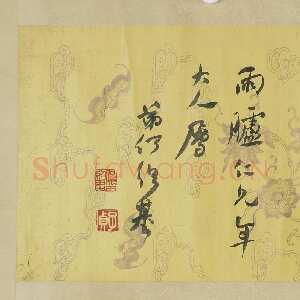 雨臚仁兄年
大人屬
弟何紹基
Shufawang.CN